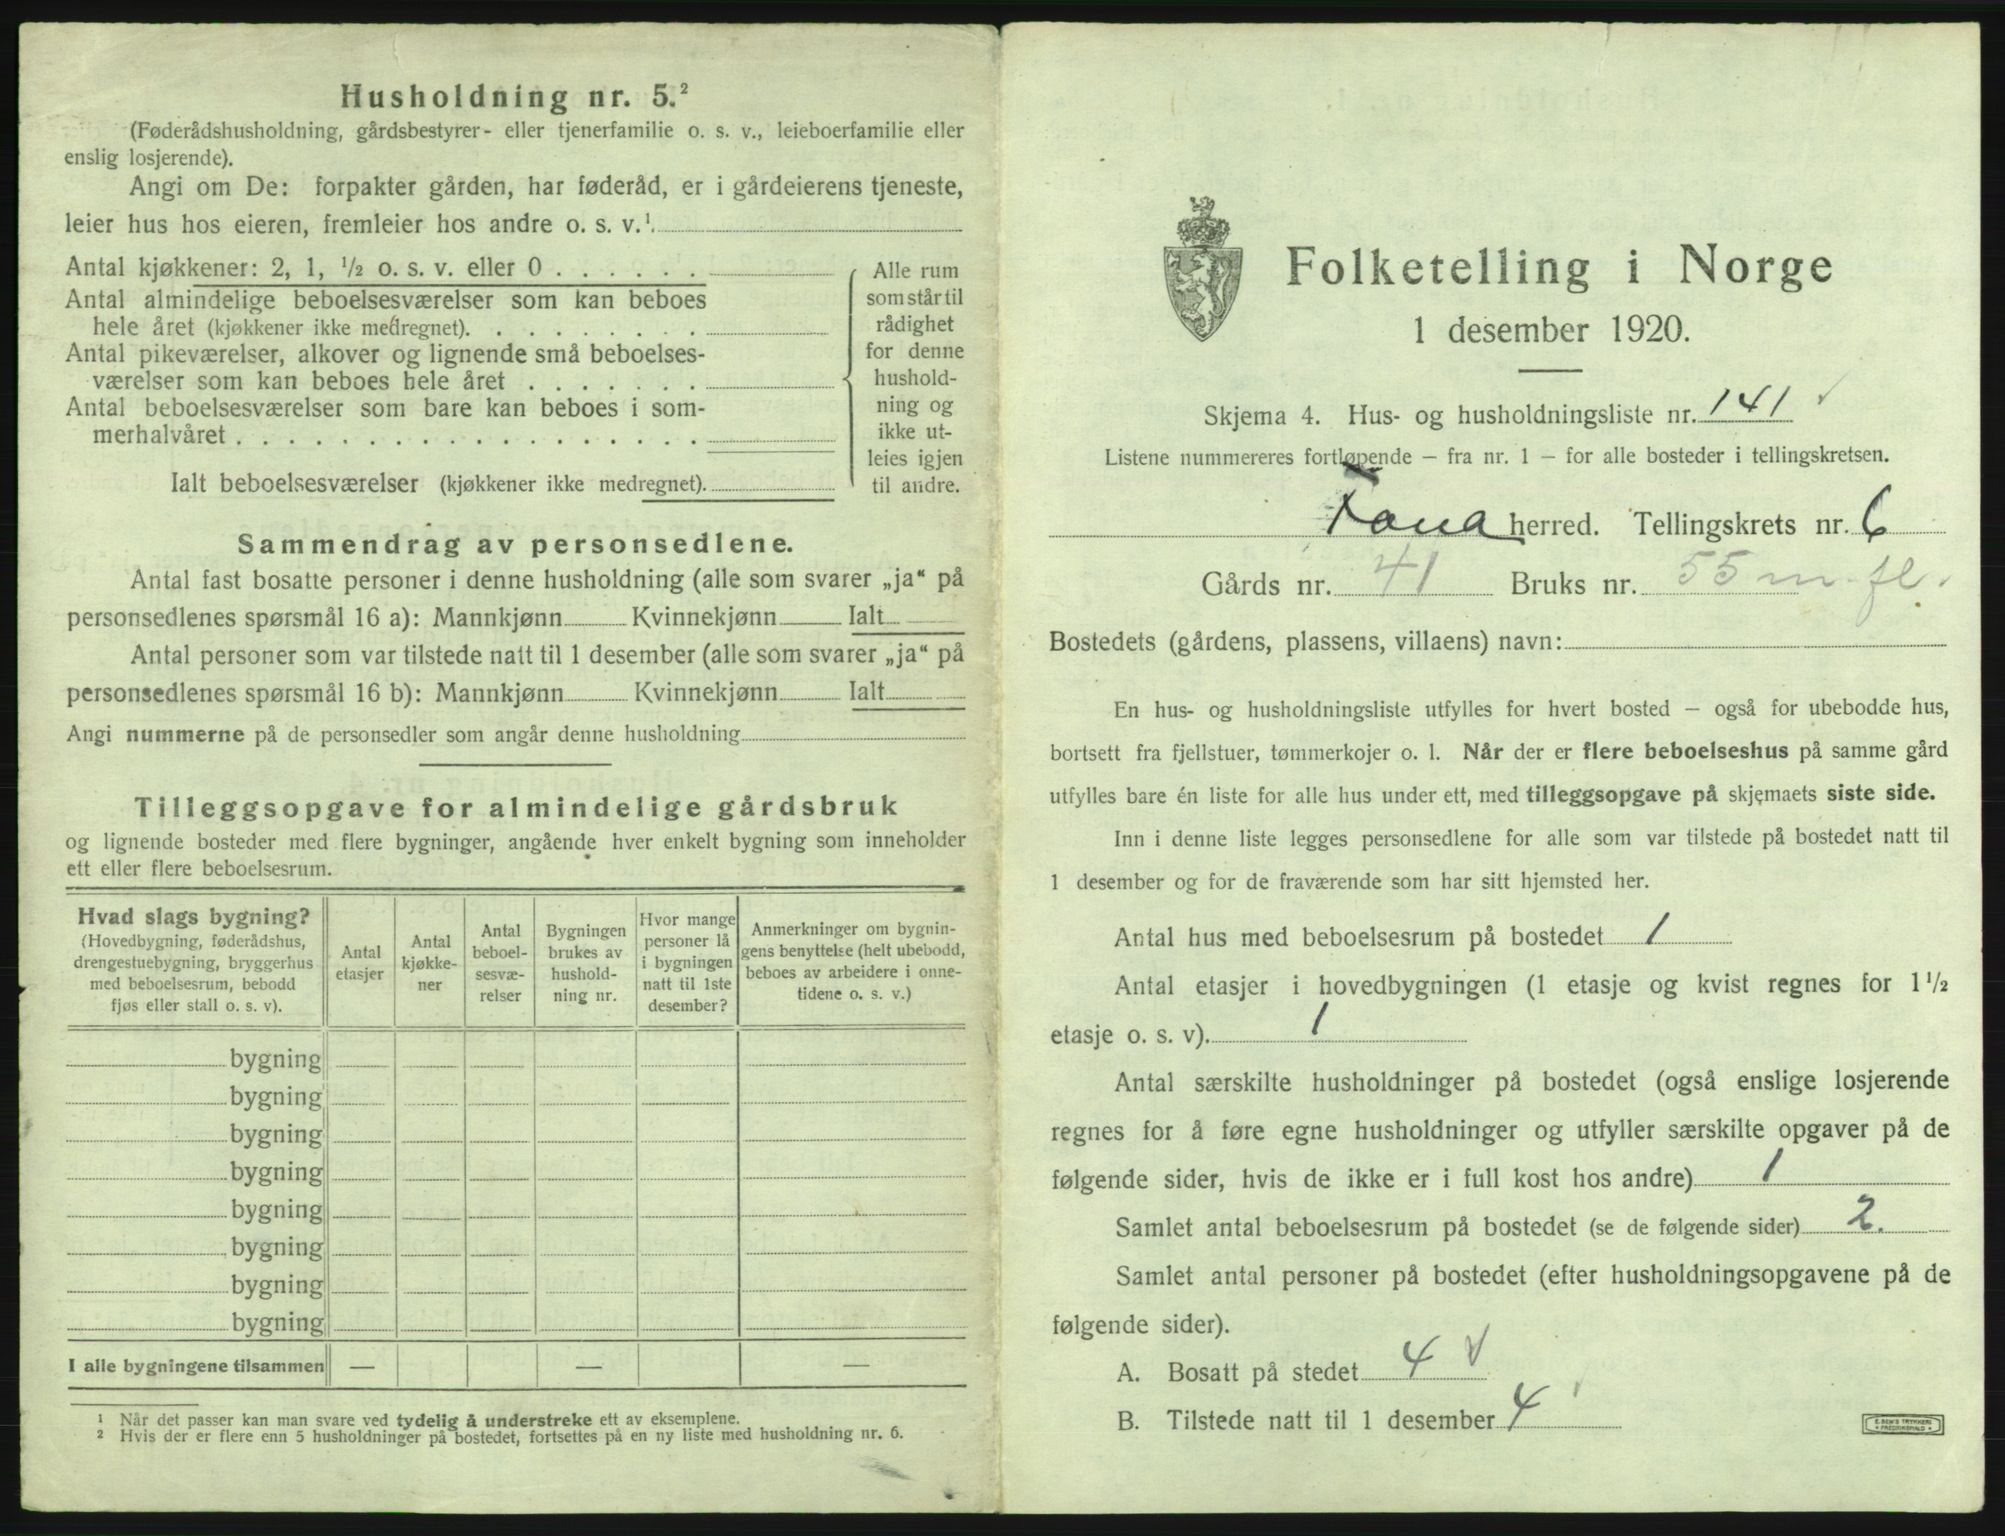 Husholdning nr. 5.²
(Føderådshusholdning, gårdsbestyrer- eller tjenerfamilie o. s. v., leieboerfamilie eller
enslig losjerende).
Angi om De: forpakter gården, har føderåd, er i gårdeierens tjeneste,
leier hus hos eieren, fremleier hos andre o. s. v.¹.
Antal kjøkkener: 2, 1, ½ o. s. v. eller 0 . . . . . .
Antal almindelige beboelsesværelser som kan beboes
hele året (kjøkkener ikke medregnet). . . . . . . . . .
Antal pikeværelser, alkover og lignende små beboelses-
værelser som kan beboes hele året . . . . . . .
Antal beboelsesværelser som bare kan beboes i som-
merhalvåret . . . . . . . . . . . . . . . . . .
Ialt beboelsesværelser (kjøkkener ikke medregnet).
Alle rum
som står til
rådighet
for denne
hushold-
ning og
ikke ut-
leies igjen
til andre.
Sammendrag av personsedlene.
Antal fast bosatte personer i denne husholdning (alle som svarer „ja“ på
personsedlenes spørsmål 16 a): Mannkjønn Kvinnekjønn Ialt
Antal personer som var tilstede natt til 1 desember (alle som svarer „ja“ på
personsedlenes spørsmål 16 b): Mannkjønn Kvinnekjønn Ialt
Angi nummerne på de personsedler som angår denne husholdning
Tilleggsopgave for almindelige gårdsbruk
og lignende bosteder med flere bygninger, angående hver enkelt bygning som inneholder
ett eller flere beboelsesrum.
Hvad slags bygning?
(Hovedbygning, føderådshus,
drengestuebygning, bryggerhus
med beboelsesrum, bebodd
fjøs eller stall o. s. v).
Antal
etasjer
Antal
kjøkke-
ner
Antal
beboel-
sesvæ-
relser
Bygningen
brukes av
hushold-
ning nr.
Hvor mange
personer lå
i bygningen
natt til 1ste
desember?
Anmerkninger om bygnin-
gens benyttelse (helt ubebodd,
beboes av arbeidere i onne-
tidene o. s. v.)
bygning
bygning
bygning
bygning
bygning
bygning
bygning
bygning
I alle bygningene tilsammen — — —
¹ Når det passer kan man svare ved tydelig å understreke ett av eksemplene.
² Hvis der er flere enn 5 husholdninger på bostedet, fortsettes på en ny liste med husholdning nr. 6.
Folketelling i Norge
1 desember 1920.
Skjema 4. Hus- og husholdningsliste nr. 141 ✓
Listene nummereres fortløpende – fra nr. 1 – for alle bosteder i tellingskretsen.
Fana herred. Tellingskrets nr. 6
Gårds nr. 41 Bruks nr. 55 m. fl.
Bostedets (gårdens, plassens, villaens) navn:
En hus- og husholdningsliste utfylles for hvert bosted – også for ubebodde hus,
bortsett fra fjellstuer, tømmerkojer o. l. Når der er flere beboelseshus på samme gård
utfylles bare én liste for alle hus under ett, med tilleggsopgave på skjemaets siste side.
Inn i denne liste legges personsedlene for alle som var tilstede på bostedet natt til
1 desember og for de fraværende som har sitt hjemsted her.
Antal hus med beboelsesrum på bostedet 1
Antal etasjer i hovedbygningen (1 etasje og kvist regnes for 1½
etasje o. s. v). 1
Antal særskilte husholdninger på bostedet (også enslige losjerende
regnes for å føre egne husholdninger og utfyller særskilte opgaver på de
følgende sider, hvis de ikke er i full kost hos andre) 1
Samlet antal beboelsesrum på bostedet (se de følgende sider) 2.
Samlet antal personer på bostedet (efter husholdningsopgavene på de
følgende sider).
A. Bosatt på stedet 4 ✓
B. Tilstede natt til 1 desember 4